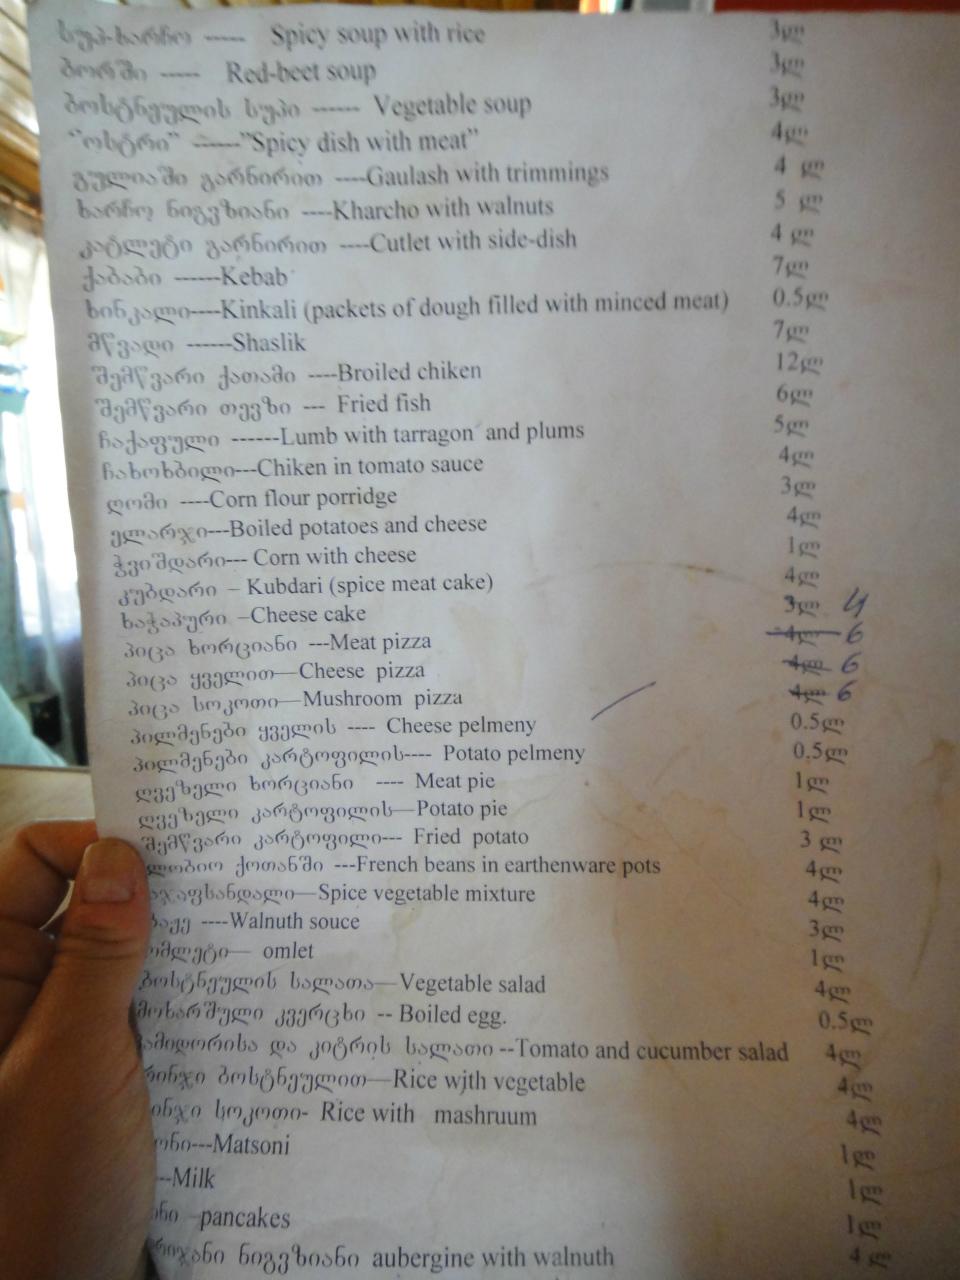 სუპ-ხარჩო ----- Spicy soup with rice 3ლ
ბორში ----- Red-beet soup 3ლ
ბოსტნეულის სუპი ------ Vegetable soup 3ლ
"ოსტრი" ------"Spicy dish with meat" 4ლ
გულიაში გარნირით ----Gaulash with trimmings 4 ლ
ხარჩო ნიგვზიანი ----Kharcho with walnuts 5 ლ
კატლეტი გარნირით ----Cutlet with side-dish 4 ლ
ქაბაბი ------Kebab 7ლ
ხინკალი----Kinkali (packets of dough filled with minced meat) 0.5ლ
მწვადი ------Shaslik 7ლ
შემწვარი ქათამი ----Broiled chiken 12ლ
შემწვარი თევზი --- Fried fish 6ლ
ჩაქაფული ------Lumb with tarragon and plums 5ლ
ჩახოხბილი---Chiken in tomato sauce 4ლ
ღომი ----Corn flour porridge 3ლ
ელარჯი---Boiled potatoes and cheese 4ლ
ჭვიშდარი--- Corn with cheese 1ლ
კუბდარი – Kubdari (spice meat cake) 4ლ
ხაჭაპური –Cheese cake 3ლ 4
პიცა ხორციანი ---Meat pizza 4ლ 6
პიცა ყველით—Cheese pizza 4ლ 6
პიცა სოკოთი—Mushroom pizza 4ლ 6
პილმენები ყველის ---- Cheese pelmeny 0.5ლ
პილმენები კარტოფილის---- Potato pelmeny 0.5ლ
ღვეზელი ხორციანი ---- Meat pie 1ლ
ღვეზელი კარტოფილის—Potato pie 1ლ
შემწვარი კარტოფილი--- Fried potato 3 ლ
ლობიო ქოთანში ---French beans in earthenware pots 4ლ
აჯაფსანდალი—Spice vegetable mixture 4ლ
ბაჟე ----Walnuth souce 3ლ
ომლეტი— omlet 1ლ
ბოსტნეულის სალათა—Vegetable salad 4ლ
მოხარშული კვერცხი -- Boiled egg. 0.5ლ
ამიდორისა და კიტრის სალათი --Tomato and cucumber salad 4ლ
რინჯი ბოსტნეულით—Rice wjth vegetable 4ლ
ინჯი სოკოთი- Rice with mashruum 4ლ
ონი---Matsoni 1ლ
--Milk 1ლ
ინი –pancakes 1ლ
რიჯანი ნიგვზიანი aubergine with walnuth 4 ლ